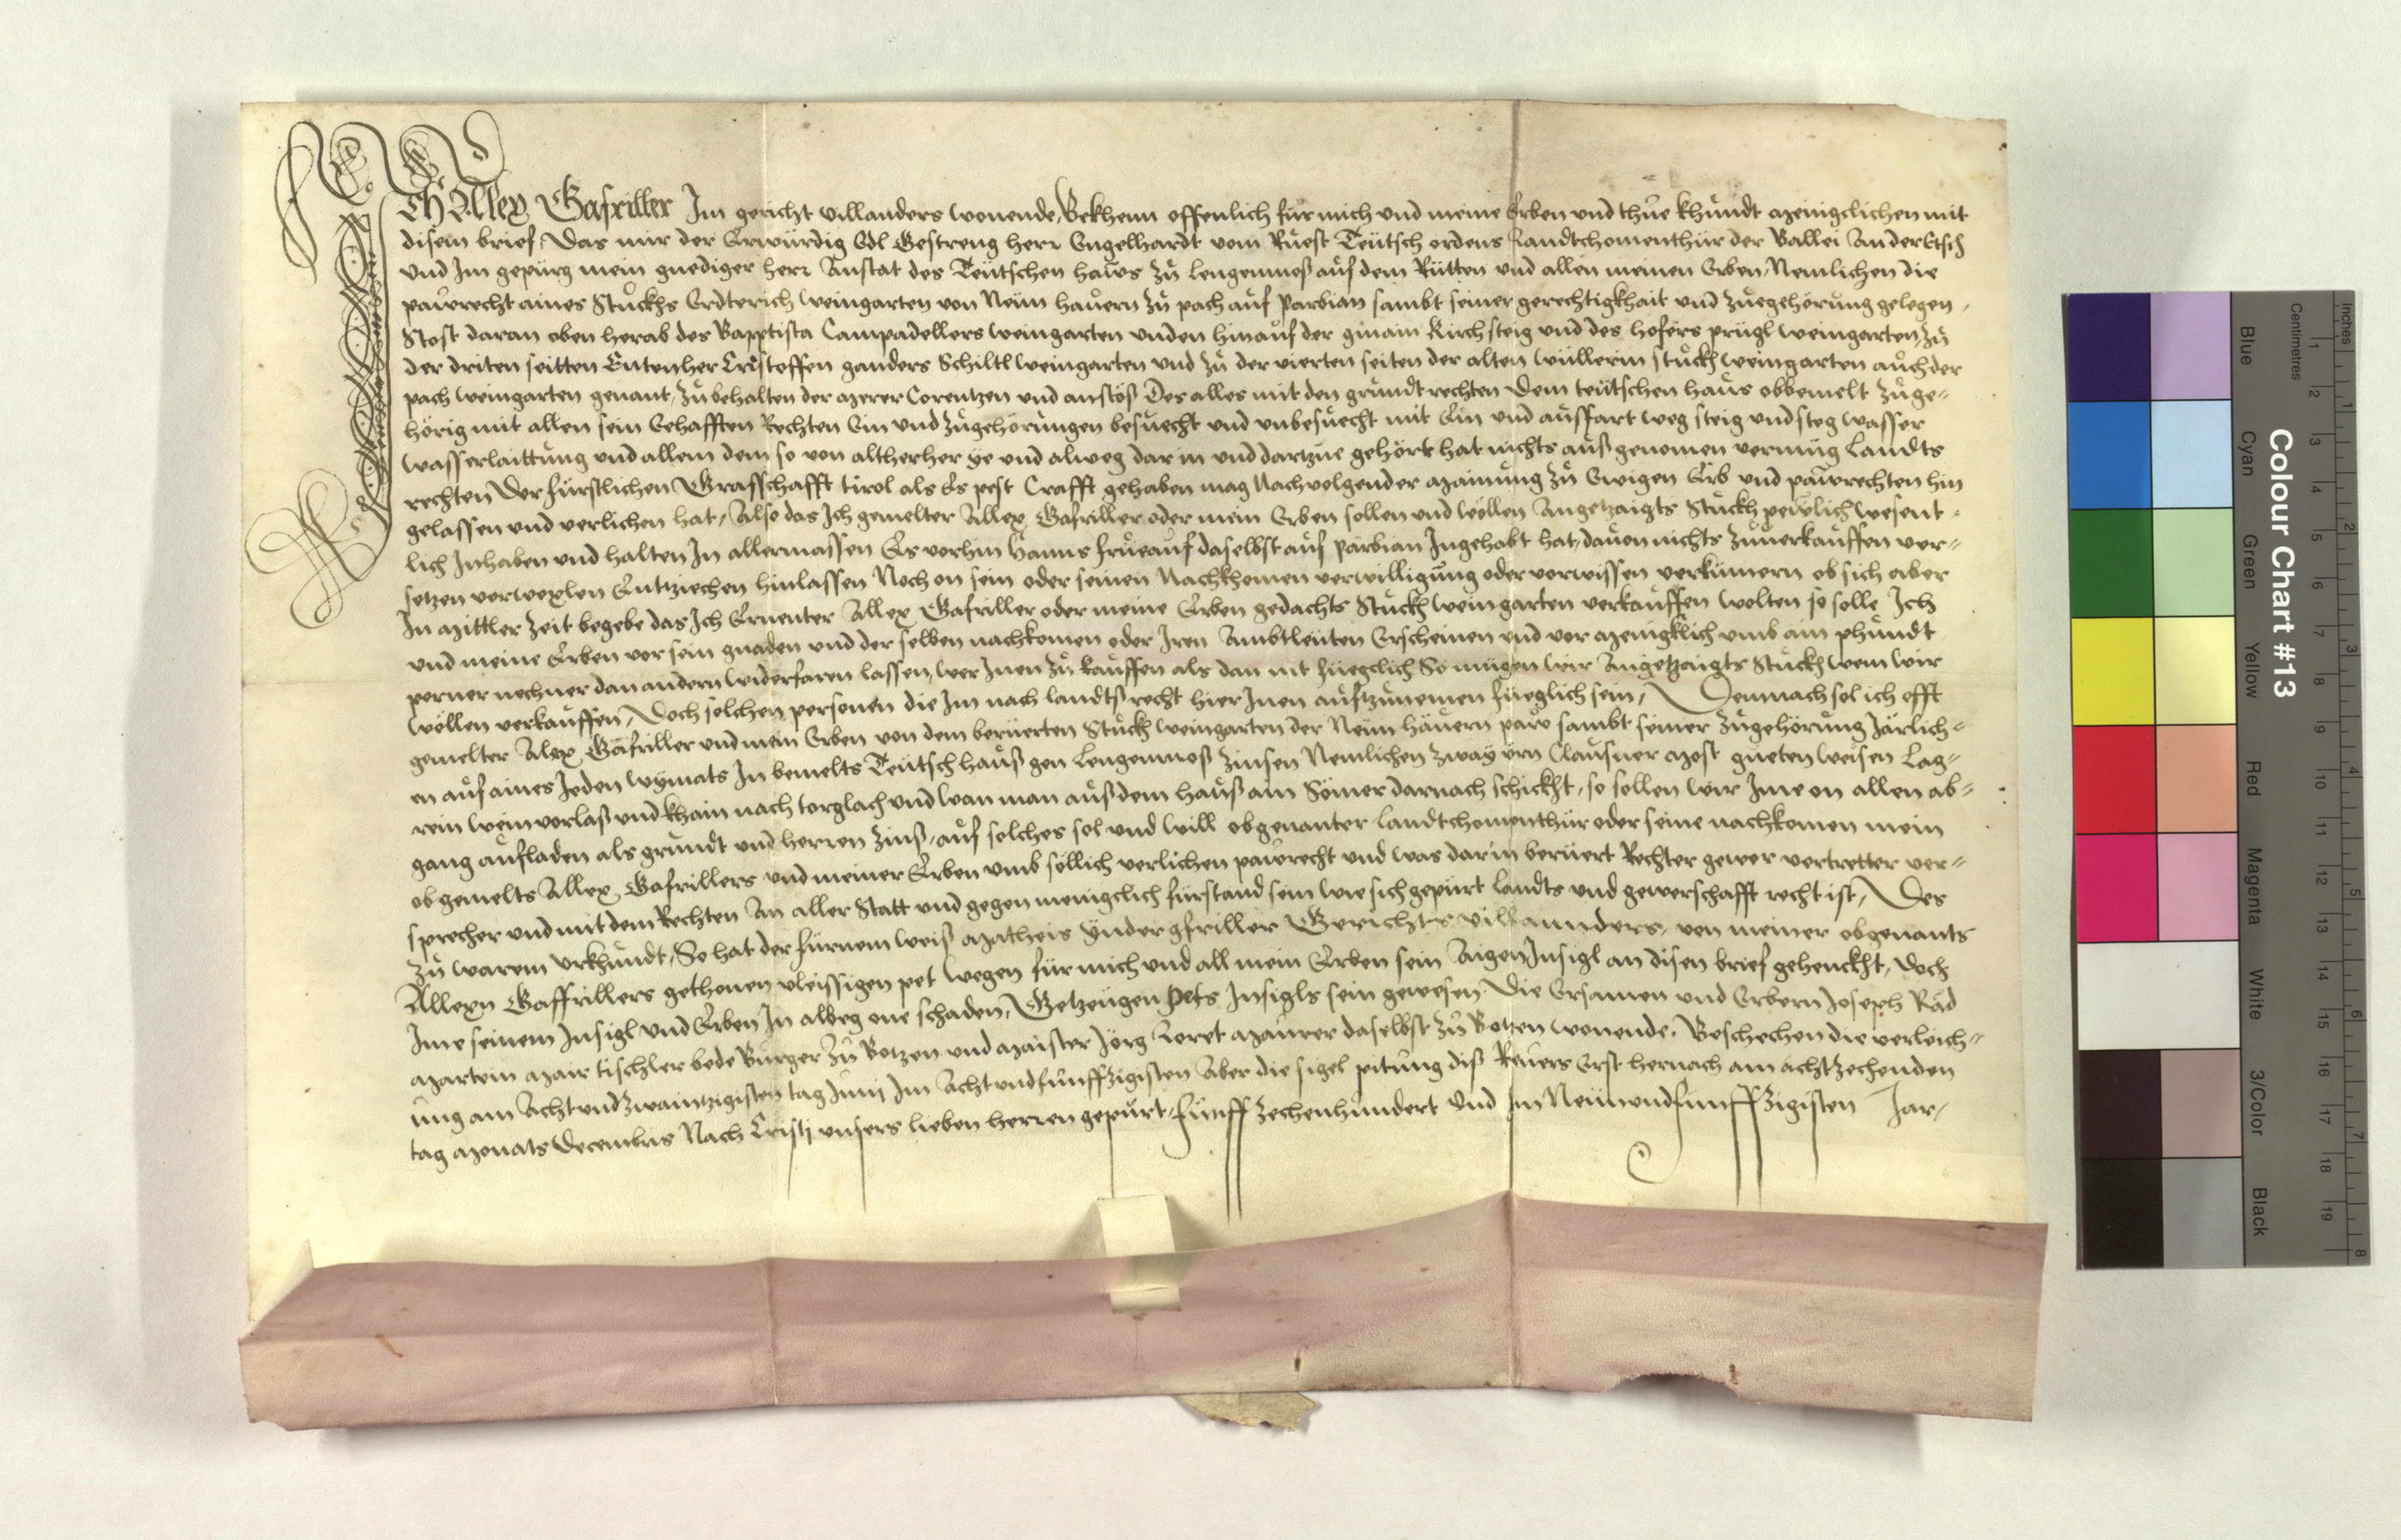 Ich Allex Gafriller Im gericht villanders wonende, Bekhenn offenlich für mich und meine Erben und thue khundt menigclichen mit
disem brief, Das mir der Erwürdig Edl Gestreng herr Engelhardt vom Ruest Teütsch ordens Landtchomenthür der Ballei An der Etsch
und Im gepürg mein gnediger herr Anstat des Teütschen haws zu Lengenmoß auf dem Rütten und allen meinen Erben Nemlichen die
pawrecht aines Stuckhs Erdterich weingarten von Neun hauern zu pach auf Parbian sambt seiner gerechtigkhait und zuegehörung gelegen,
Stost daran oben herab des Baptista Campadellers weingarten unden hinauf der gmain Kirchsteig und des hofers prügl weingarten, zu
der driten seitten Entenher Cristoffen ganders Schiltl weingarten und zu der vierten seiten der alten wüllerin stuckh weingarten auch der
pach weingarten genant, zu behalten der merer Corentzen und anstöß Des alles mit den grundtrechten Dem teütschen haus obbemelt zuge-
hörig mit allen sein Eehafften Rechten Ein und zugehörungen besuecht und unbesuecht mit Ein und aussfart weg steig und steg wasser
wasserlaittung und allem dem so von altherher ye und alweg dar in und dartzue gehört hat nichts auß genomen vermüg Landts
rechten Der fürstlichen Grafschafft tirol als Es pest Crafft gehaben mag Nachvolgender mainung zu Ewigen Erb und pawrechten hin
gelassen und verlichen hat, Also das Ich gemelter Allex Gafriller oder mein Erben sollen und wöllen Angetzaigts Stuckh pewlich wesent-
lich Inhaben und halten In allermassen Es vorhin Hanns frueauf daselbst auf parbian Ingehabt hat, dauon nichts zuuerkauffen ver-
setzen verwexlen Entziechen hinlassen Noch on sein oder seinen Nachkhomen verwilligung oder vorwissen verkümern ob sich aber
In mittler zeit begebe das Ich Ernenter Allex Gafriller oder meine Erben gedachts Stuckh weingarten verkauffen wolten so solle Ich
und meine Erben vor sein gnaden und der selben nachkomen oder Iren Ambtleüten Erscheinen und vor menigklich umb ain phundt
perner nechner dan andern widerfaren lassen, wer Inen zu kauffen als dan nit füegclich So mügen wir Angetzaigts Stuckh wem wir
wöllen verkauffen, Doch solchen personen die Im nach landtß recht hier Inen auftzunemen füeglich sein, Demnach sol ich offt
gemelter Alex Gafriller und mein Erben von dem berüerten Stuckh weingarten der Neün häuern paw sambt seiner zugehörung Järlich-
en auf aines Jeden wymats In bemelts Teütsch hauß gen Lengenmoß zinsen Nemlichen zway ürn Clausner most gueten weisen Lag-
rein wein vorlaß und khain nach torglach und wan man auß dem hauß ain Sömer darnach schickht, so sollen wir Ime on allen ab-
gang aufladen als grundt und herren zinß, auf solches sol und will obgenanter Landtchomenthür oder seine nachkomen mein
obgemelts Allex Gafrillers und meiner Erben umb söllich verlichen pawrecht und was darin berüert Rechter gewer vertretter ver-
sprecher und mit dem Rechten An aller Statt und gegen menigclich fürstand sein wie sich gepürt Landts und gewerschafft recht ist, Des
zu warem urkhundt, So hat der fürnem weiß Matheis Undergfriller Gerichts villannders, von meiner obgenants
Allexn Gaffrillers gethonen vleissigen pet wegen für mich und all mein Erben sein Aigen Insigl an disen brief gehenckht, Doch
Ime seinem Insigl und Erben In albeg one schaden, Getzeügen pets Insigls sein gewesen Die Ersamen und Erbern Joseph Räd
Martein Mair tischler bede Burger zu Botzen und Maister Jörg Loret Maurer daselbst zu Botzen wonende. Beschechen die verleich-
ung am Acht und zwaintzigisten tag Junii Im Acht und funffzigisten Aber die sigel pitung diß Reuers Erst hernach am achtzechenden
tag Monats Decembris Nach Cristj unsers lieben herren gepurt, funffzechenhundert Und Im Neün und funffzigisten Jar,
Colour Chart #13
Blue Cyan Green Yellow Red Magenta White 3/Color Black
Centimetres 1 2 3 4 5 6 7 8 9 10 11 12 13 14 15 16 17 18 19
Inches 1 2 3 4 5 6 7 8